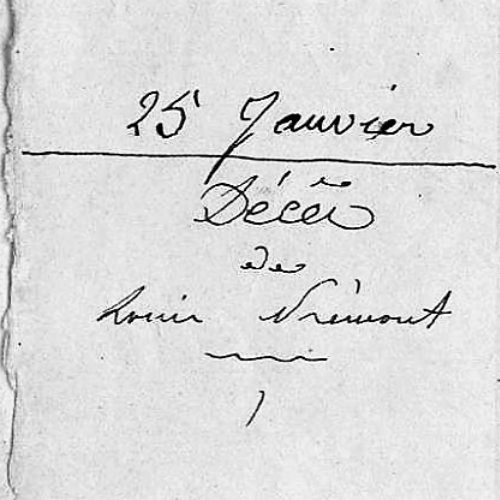 25 Janvier
Décès
de
Louis Vrémont